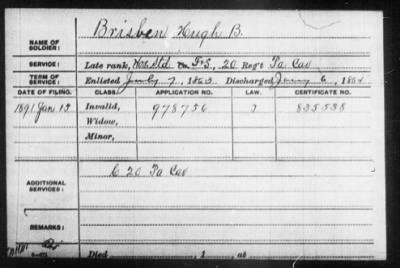 Brisben Hugh B.
NAME OF SOLDIER:
SERVICE: Late rank, Co. F&S, 20 Reg't Pa Cav
TERM OF SERVICE: Enlisted July 7, 1863 Discharged 6, 1864
DATE OF FILING. CLASS. APPLICATION NO. LAW. CERTIFICATE NO.
1891 Jan 13 Invalid, 978756 835538
Widow,
Minor,
C 20 Pa Cav
ADDITIONAL SERVICES:
REMARKS:
Died , 1 , at